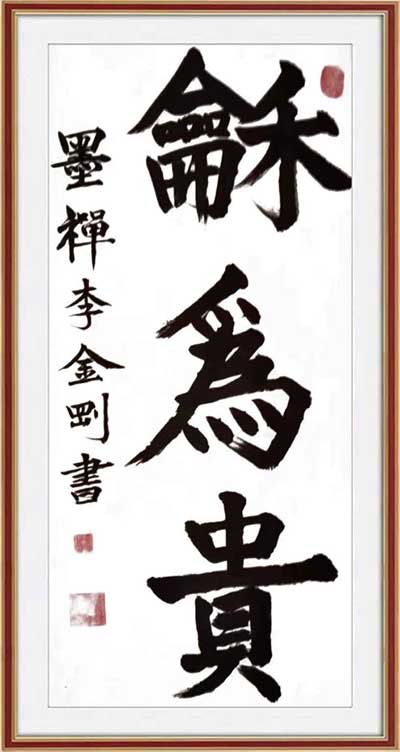 龢爲貴
墨禪李金剛書